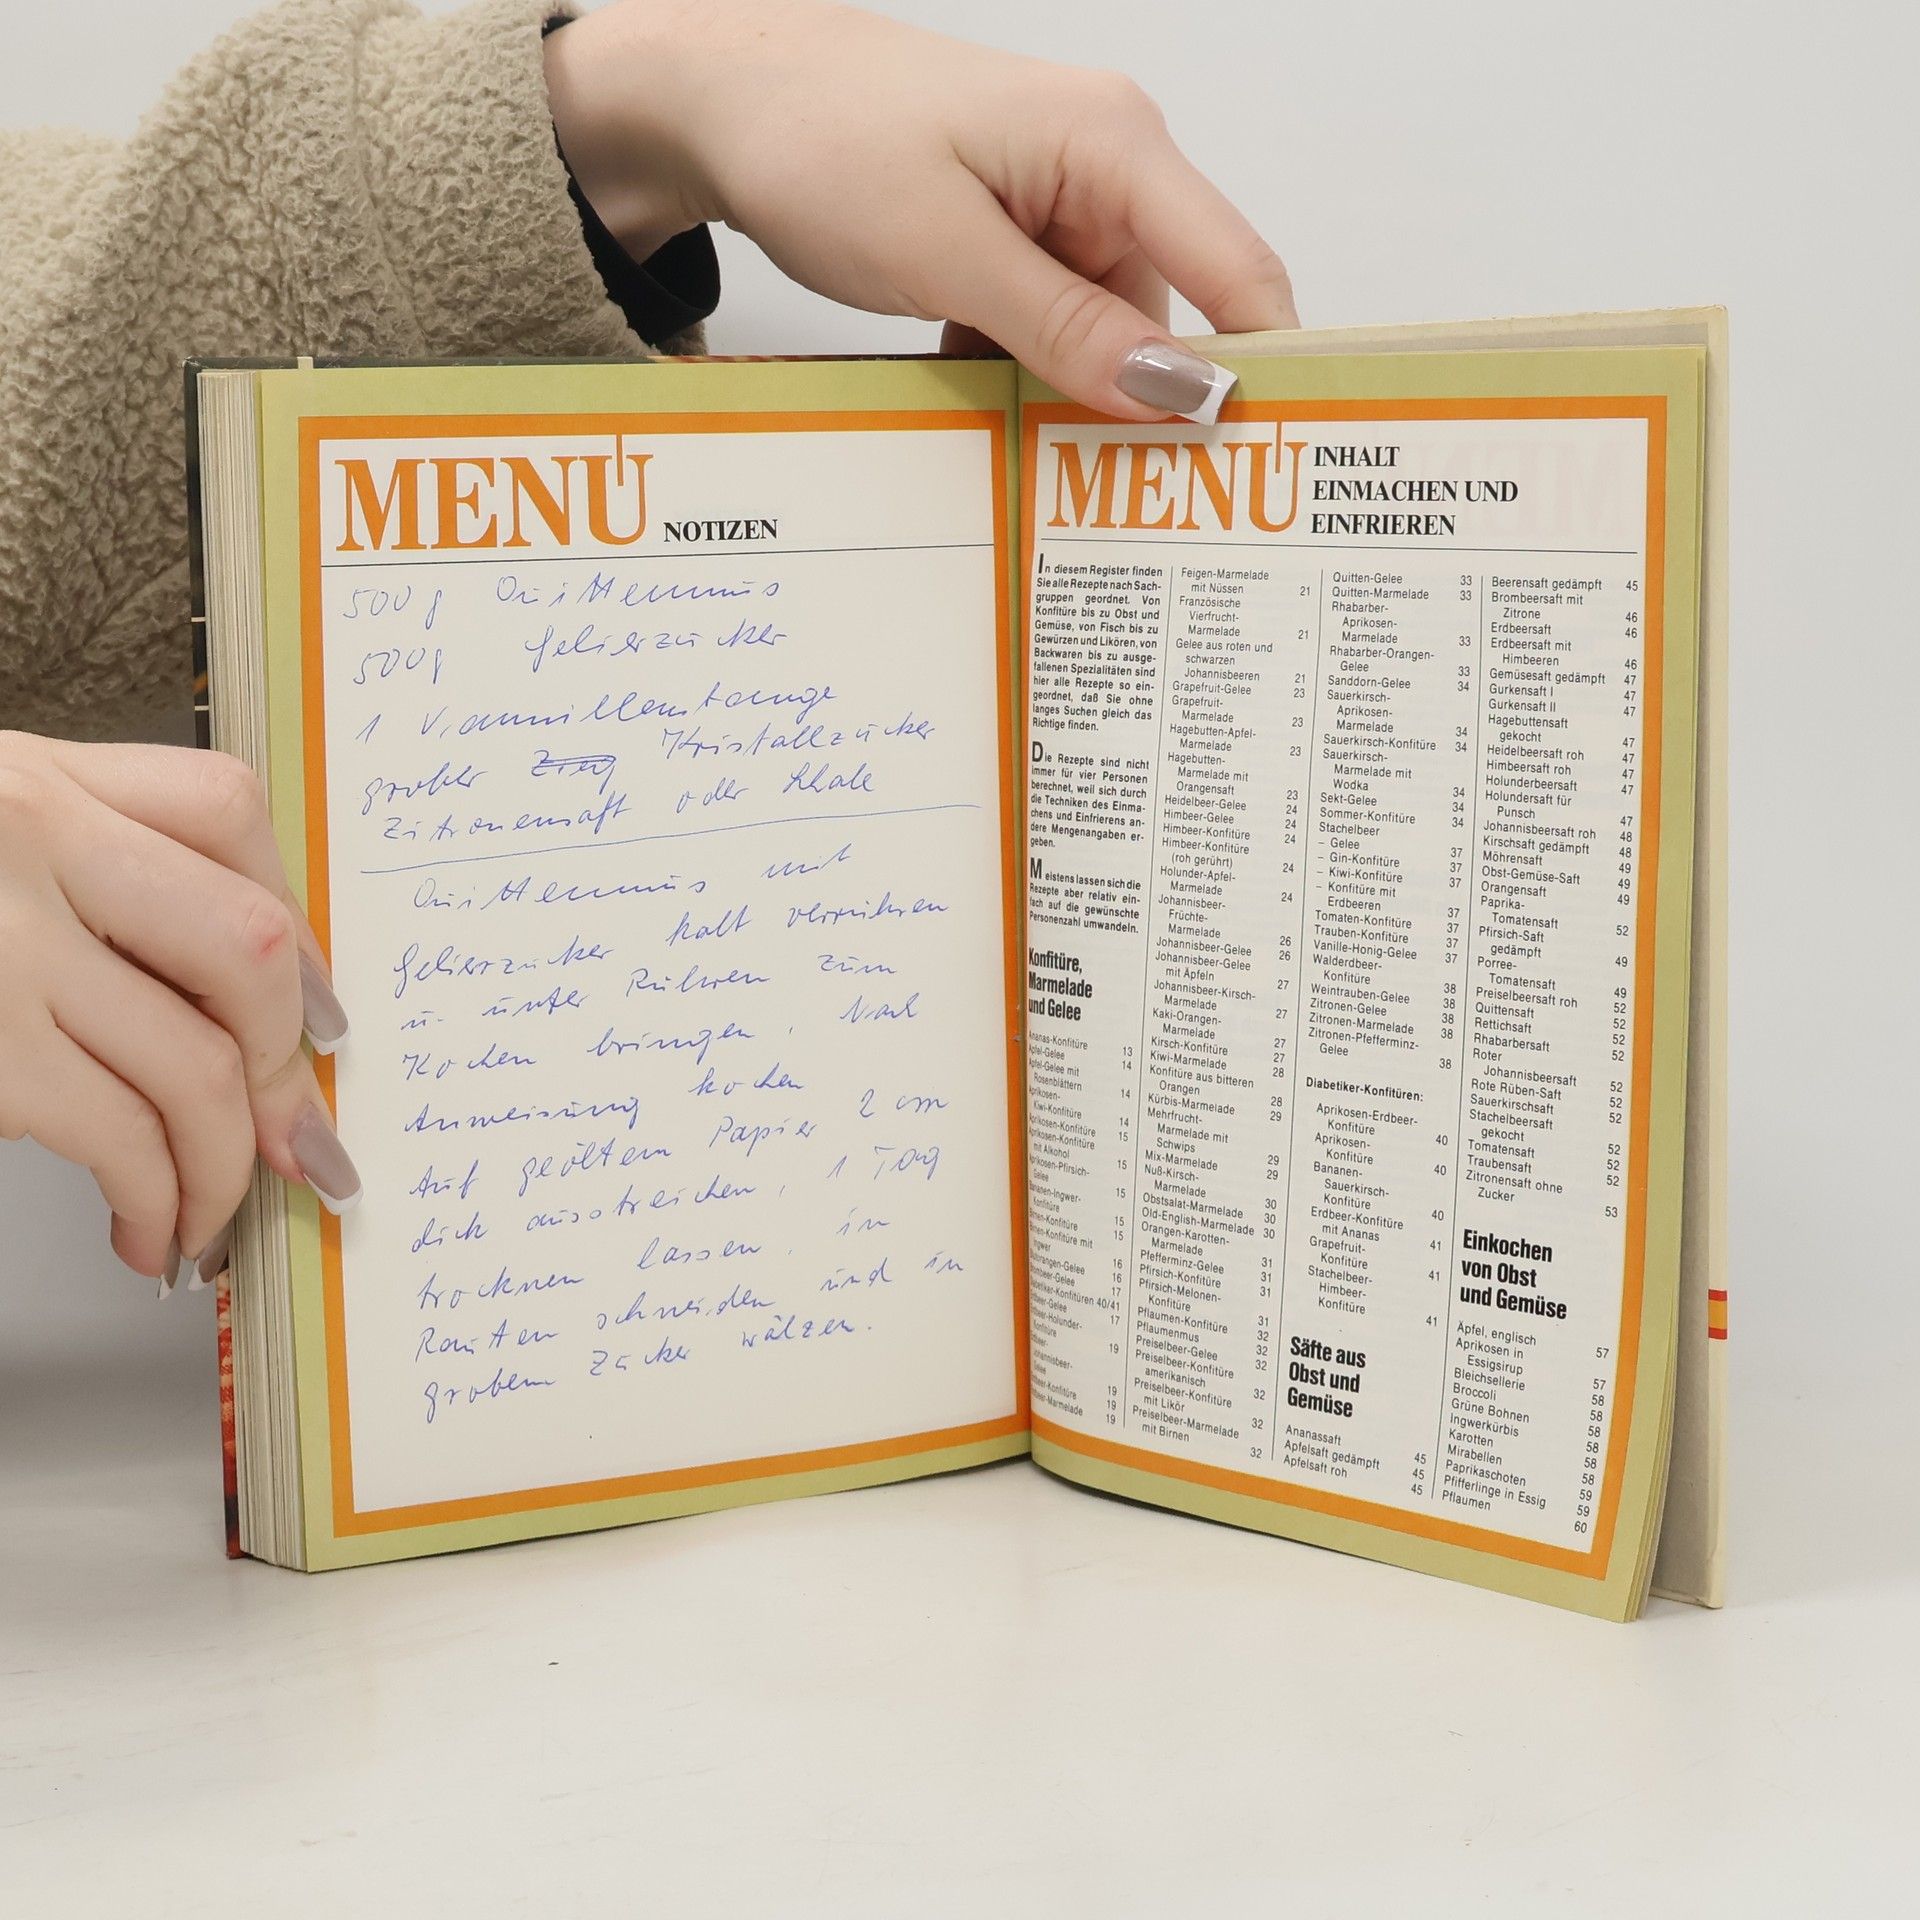 MENÜ NOTIZEN
500 g Quittenmus
500g Gelierzucker
1 Vannillenstange
grober Kristallzucker
Zitronensaft oder Schale
Quittenmus mit
Gelierzucker kalt verrühren
u. unter Rühren zum
Kochen bringen, Nach
Anweisung kochen
Auf geöltem Papier 2 cm
dick ausstreichen, 1 Tag
trocknen lassen, in
Rauten schneiden und in
grobem Zucker wälzen.
MENÜ INHALT
EINMACHEN UND
EINFRIEREN
In diesem Register finden
Sie alle Rezepte nach Sach-
gruppen geordnet. Von
Konfitüre bis zu Obst und
Gemüse, von Fisch bis zu
Gewürzen und Likören, von
Backwaren bis zu ausge-
fallenen Spezialitäten sind
hier alle Rezepte so ein-
geordnet, daß Sie ohne
langes Suchen gleich das
Richtige finden.
Die Rezepte sind nicht
immer für vier Personen
berechnet, weil sich durch
die Techniken des Einma-
chens und Einfrierens an-
dere Mengenangaben er-
geben.
Meistens lassen sich die
Rezepte aber relativ ein-
fach auf die gewünschte
Personenzahl umwandeln.
Konfitüre,
Marmelade
und Gelee
Ananas-Konfitüre 13
Apfel-Gelee 14
Apfel-Gelee mit
Rosenblättern 14
Aprikosen-
Kiwi-Konfitüre 14
Aprikosen-Konfitüre 15
Aprikosen-Konfitüre
mit Alkohol 15
Aprikosen-Pfirsich-
Gelee 15
Bananen-Ingwer-
Konfitüre 15
Birnen-Konfitüre 15
Birnen-Konfitüre mit
Ingwer 16
Blutorangen-Gelee 16
Brombeer-Gelee 17
Diabetiker-Konfitüren 40/41
17
19
19
19
19
Feigen-Marmelade
mit Nüssen 21
Französische
Vierfrucht-
Marmelade 21
Gelee aus roten und
schwarzen
Johannisbeeren 21
Grapefruit-Gelee 23
Grapefruit-
Marmelade 23
Hagebutten-Apfel-
Marmelade 23
Hagebutten-
Marmelade mit
Orangensaft 23
Heidelbeer-Gelee 24
Himbeer-Gelee 24
Himbeer-Konfitüre 24
Himbeer-Konfitüre
(roh gerührt) 24
Holunder-Apfel-
Marmelade 24
Johannisbeer-
Früchte-
Marmelade 26
Johannisbeer-Gelee 26
Johannisbeer-Gelee
mit Äpfeln 27
Johannisbeer-Kirsch-
Marmelade 27
Kaki-Orangen-
Marmelade 27
Kirsch-Konfitüre 27
Kiwi-Marmelade 28
Konfitüre aus bitteren
Orangen 28
Kürbis-Marmelade 29
Mehrfrucht-
Marmelade mit
Schwips 29
Mix-Marmelade 29
Nuß-Kirsch-
Marmelade 30
Obstsalat-Marmelade 30
Old-English-Marmelade 30
Orangen-Karotten-
Marmelade 31
Pfefferminz-Gelee 31
Pfirsich-Konfitüre 31
Pfirsich-Melonen-
Konfitüre 31
Pflaumen-Konfitüre 32
Pflaumenmus 32
Preiselbeer-Gelee 32
Preiselbeer-Konfitüre
amerikanisch 32
Preiselbeer-Konfitüre
mit Likör 32
Preiselbeer-Marmelade
mit Birnen 32
Quitten-Gelee 33
Quitten-Marmelade 33
Rhabarber-
Aprikosen-
Marmelade 33
Rhabarber-Orangen-
Gelee 33
Sanddorn-Gelee 34
Sauerkirsch-
Aprikosen-
Marmelade 34
Sauerkirsch-Konfitüre 34
Sauerkirsch-
Marmelade mit
Wodka 34
Sekt-Gelee 34
Sommer-Konfitüre 34
Stachelbeer
– Gelee 37
– Gin-Konfitüre 37
– Kiwi-Konfitüre 37
– Konfitüre mit
Erdbeeren 37
Tomaten-Konfitüre 37
Trauben-Konfitüre 37
Vanille-Honig-Gelee 37
Walderdbeer-
Konfitüre 38
Weintrauben-Gelee 38
Zitronen-Gelee 38
Zitronen-Marmelade 38
Zitronen-Pfefferminz-
Gelee 38
Diabetiker-Konfitüren:
Aprikosen-Erdbeer-
Konfitüre 40
Aprikosen-
Konfitüre 40
Bananen-
Sauerkirsch-
Konfitüre 40
Erdbeer-Konfitüre
mit Ananas 41
Grapefruit-
Konfitüre 41
Stachelbeer-
Himbeer-
Konfitüre 41
Säfte aus
Obst und
Gemüse
Ananassaft 45
Apfelsaft gedämpft 45
Apfelsaft roh 45
Beerensaft gedämpft 45
Brombeersaft mit
Zitrone 46
Erdbeersaft 46
Erdbeersaft mit
Himbeeren 46
Gemüsesaft gedämpft 47
Gurkensaft I 47
Gurkensaft II 47
Hagebuttensaft
gekocht 47
Heidelbeersaft roh 47
Himbeersaft roh 47
Holunderbeersaft 47
Holundersaft für
Punsch 47
Johannisbeersaft roh 48
Kirschsaft gedämpft 48
Möhrensaft 49
Obst-Gemüse-Saft 49
Orangensaft 49
Paprika-
Tomatensaft 52
Pfirsich-Saft
gedämpft 49
Porree-
Tomatensaft 49
Preiselbeersaft roh 52
Quittensaft 52
Rettichsaft 52
Rhabarbersaft 52
Roter
Johannisbeersaft 52
Rote Rüben-Saft 52
Sauerkirschsaft 52
Stachelbeersaft
gekocht 52
Tomatensaft 52
Traubensaft 52
Zitronensaft ohne
Zucker 53
Einkochen
von Obst
und Gemüse
Äpfel, englisch 57
Aprikosen in
Essigsirup 57
Bleichsellerie 58
Broccoli 58
Grüne Bohnen 58
Ingwerkürbis 58
Karotten 58
Mirabellen 58
Paprikaschoten 59
Pfifferlinge in Essig 59
Pflaumen 60